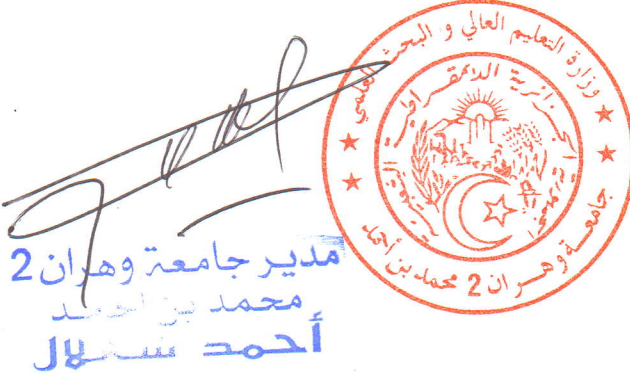 وزارة التعليم العالي و البحث العلمي
الجمهورية الجزائرية الديمقراطية الشعبية
جامعة وهران 2 محمد بن أحمد
مدير جامعة وهران 2
محمد بن احمد
أحمد شعلال